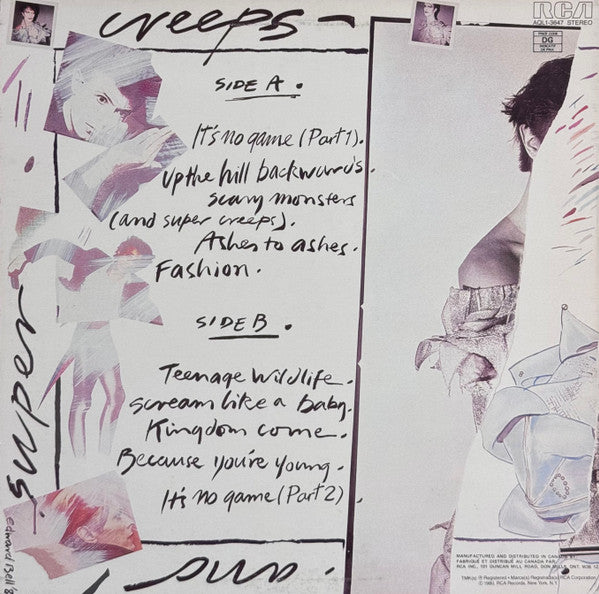 creeps -
RCA
AQL1-3647 STEREO
DG
SIDE A.
It's no game (Part 1).
up the hill backwards.
scary monsters
(and super creeps).
Ashes to ashes.
Fashion.
SIDE B.
Teenage Wildlife.
scream like a baby.
Kingdom come.
Because you're young.
It's no game (Part 2).
super
Edward Bell
MANUFACTURED AND DISTRIBUTED IN CANADA BY
FABRIQUÉ ET DISTRIBUÉ AU CANADA PAR
RCA INC., 101 DUNCAN MILL ROAD, DON MILLS, ONT.
TMK(s) ® Registered • Marca(s) Registrada(s) RCA Corporation
© 1980, RCA Records, New York, N.Y.